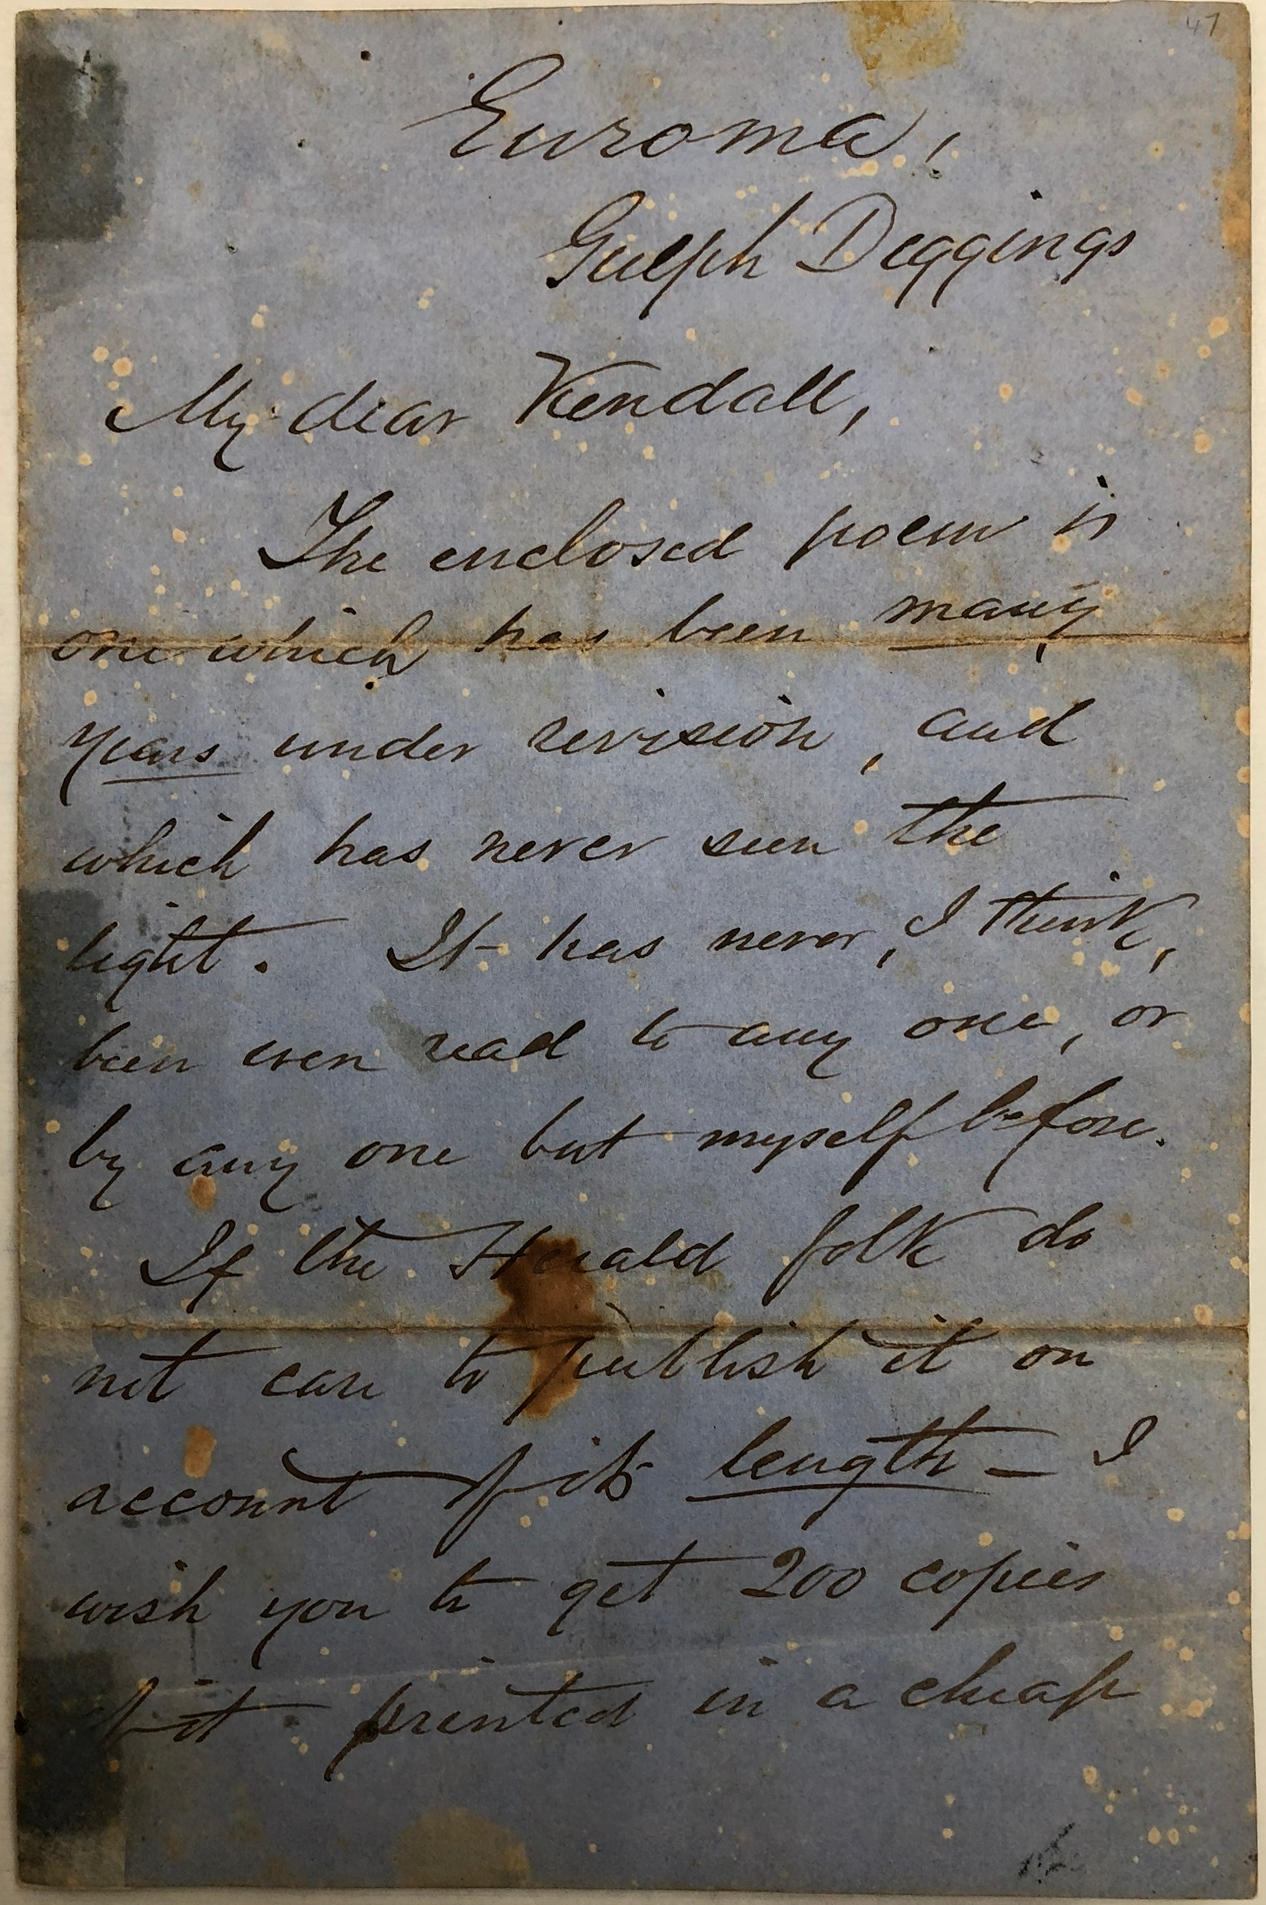 47
Euroma,
Gulph Diggings
My dear Kendall,
The enclosed poem is
one which has been many
years under revision, and
which has never seen the
light. It has never, I think,
been even read to any one, or
by any one but myself before.
If the Herald folk do
not care to publish it on
account of its length — I
wish you to get 200 copies
of it printed in a cheap